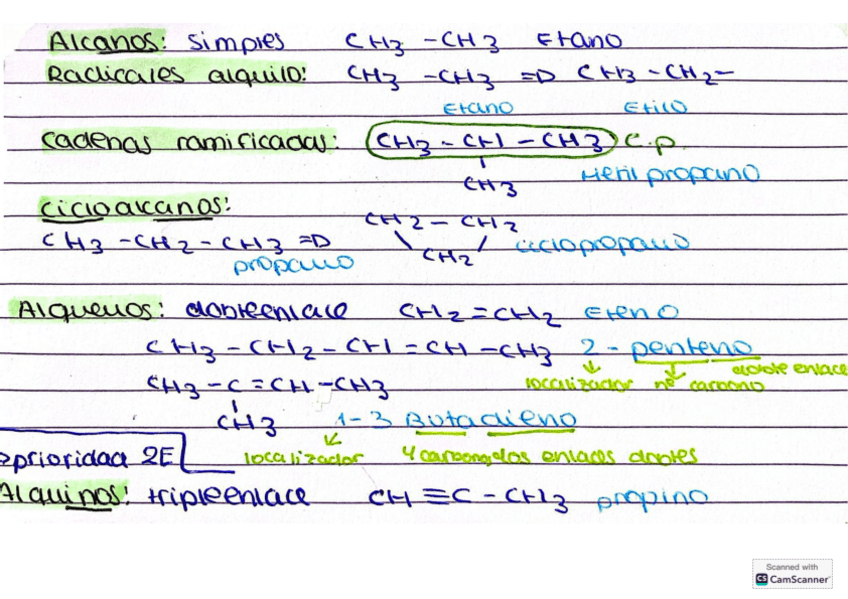 Alcanos: simples CH3 - CH3 Etano
Radicales alquilo: CH3 - CH3 => CH3 - CH2 -
Etano Etilo
Cadenas ramificadas: CH3 - CH - CH3 C.p.
CH3 Metil propano
Cicloalcanos: CH2 - CH2
CH3 - CH2 - CH3 => CH2 ciclopropano
propano
Alquenos: doble enlace CH2 = CH2 Eteno
CH3 - CH2 - CH = CH - CH3 2 - penteno
localizador nº carbono doble enlace
CH3 - C = CH - CH3
CH3 1-3 Butadieno
localizador 4 carbonos dos enlaces dobles
prioridad 2E
Alquinos: triple enlace CH ≡ C - CH3 propino
Scanned with
CS CamScanner